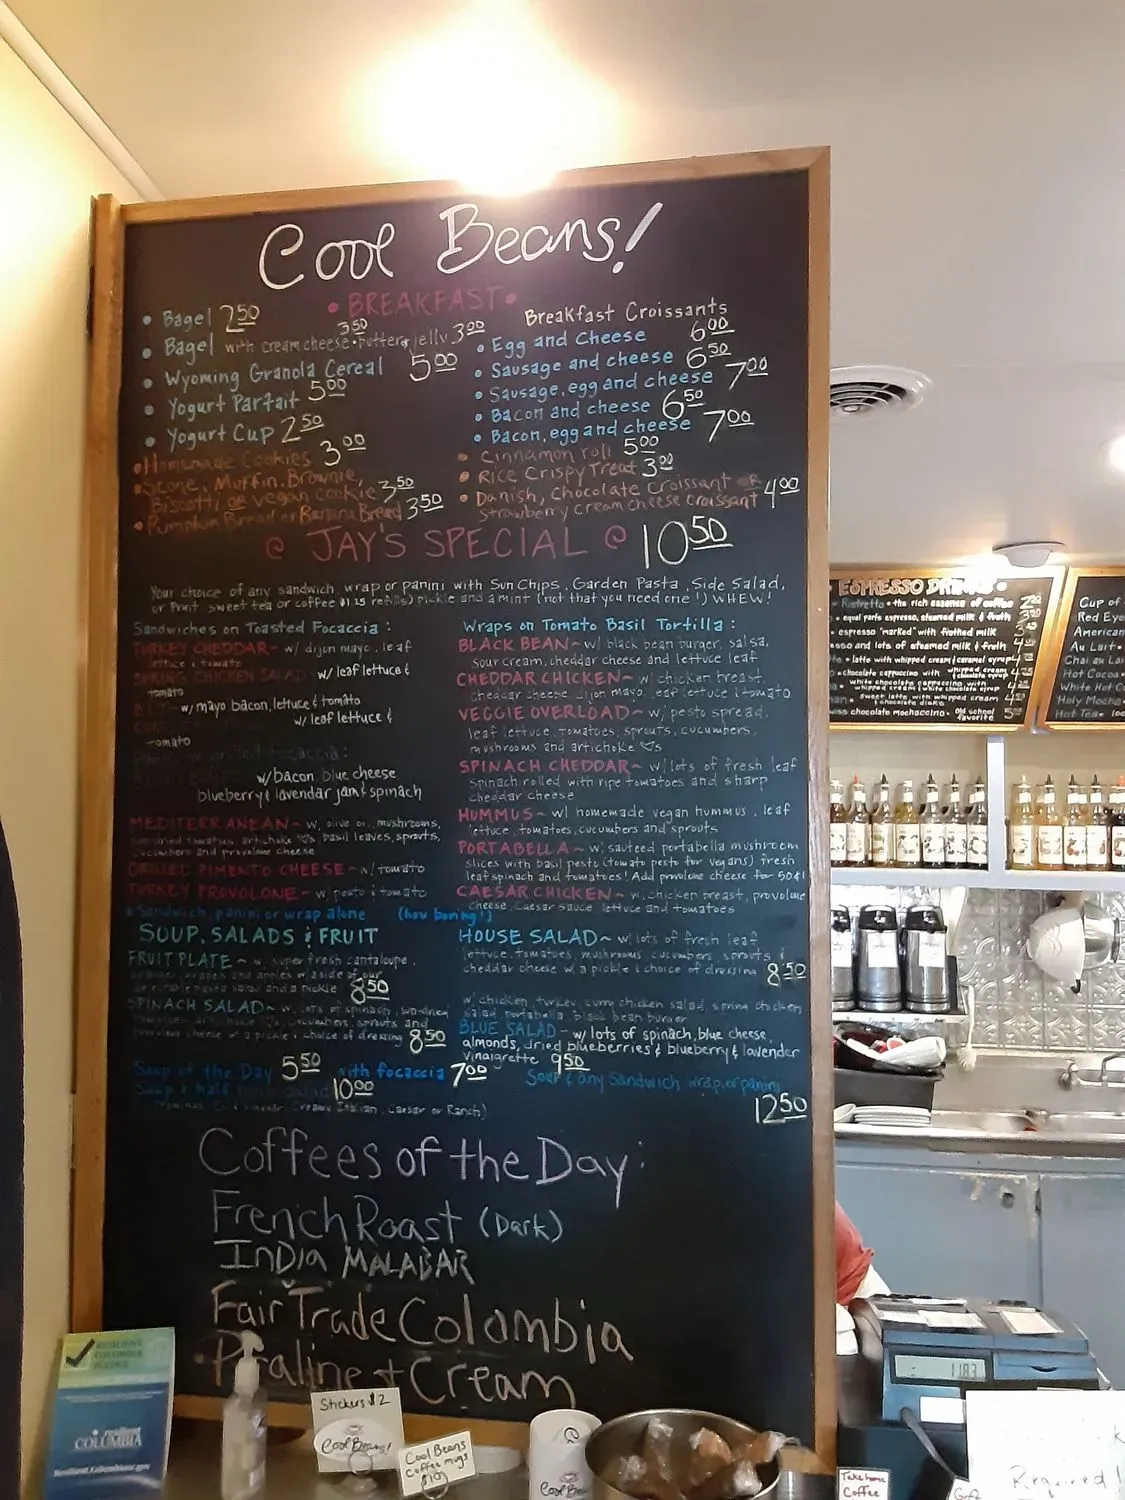 Cool Beans!
• BREAKFAST •
• Bagel 2 50
• Bagel with cream cheese 3 50 • butter & jelly 3 00
• Wyoming Granola Cereal 5 00
• Yogurt Parfait 5 00
• Yogurt Cup 2 50
• Homemade Cookies 3 00
• Scone, Muffin, Brownie,
Biscotti, or vegan cookie 3 50
• Pumpkin Bread or Banana Bread 3 50
Breakfast Croissants
• Egg and Cheese 6 00
• Sausage and cheese 6 50
• Sausage, egg and cheese 7 00
• Bacon and cheese 6 50
• Bacon, egg and cheese 7 00
• Cinnamon roll 5 00
• Rice Crispy Treat 3 00
• Danish, Chocolate Croissant or
Strawberry cream cheese croissant 4 00
@ JAY'S SPECIAL @ 10 50
Your choice of any sandwich, wrap or panini with Sun Chips, Garden Pasta, Side Salad,
or Fruit sweet tea or coffee $1.25 refills) pickle and a mint (not that you need one!) WHEW!
Sandwiches on Toasted Focaccia:
TURKEY CHEDDAR~ w/ dijon mayo, leaf
lettuce & tomato
SPRING CHICKEN SALAD w/ leaf lettuce &
tomato
w/ mayo bacon, lettuce & tomato
w/ leaf lettuce &
tomato
grilled focaccia:
w/ bacon, blue cheese
blueberry & lavendar jam & spinach
MEDITERRANEAN~ w/ olive oil, mushrooms,
sundried tomatoes, artichoke ♡s, basil leaves, sprouts,
cucumbers and provolone cheese
GRILLED PIMENTO CHEESE~ w/ tomato
TURKEY PROVOLONE~ w/ pesto & tomato
• Sandwich, panini or wrap alone (how boring!)
Wraps on Tomato Basil Tortilla:
BLACK BEAN~ w/ black bean burger, salsa,
sour cream, cheddar cheese and lettuce leaf
CHEDDAR CHICKEN~ w/ chicken breast,
cheddar cheese, dijon mayo, leaf lettuce & tomato
VEGGIE OVERLOAD~ w/ pesto spread,
leaf lettuce, tomatoes, sprouts, cucumbers,
mushrooms and artichoke ♡s
SPINACH CHEDDAR~ w/ lots of fresh leaf
spinach rolled with ripe tomatoes and sharp
cheddar cheese
HUMMUS~ w/ homemade vegan hummus, leaf
lettuce, tomatoes, cucumbers and sprouts
PORTABELLA~ w/ sauteed portabella mushroom
slices with basil pesto (tomato pesto for vegans) fresh
leaf spinach and tomatoes! Add provolone cheese for 50¢!
CAESAR CHICKEN~ w/ chicken breast, provolone
cheese, Caesar sauce lettuce and tomatoes
SOUP, SALADS & FRUIT
FRUIT PLATE~ w/ super fresh cantaloupe,
oranges, grapes and apples w/ a side of our
pasta salad and a pickle 8 50
SPINACH SALAD~ w/ lots of spinach, sun-dried
tomatoes, artichoke ♡s, cucumbers, sprouts and
provolone cheese w/ a pickle & choice of dressing 8 50
HOUSE SALAD~ w/ lots of fresh leaf
lettuce, tomatoes, mushrooms, cucumbers, sprouts &
cheddar cheese w/ a pickle & choice of dressing 8 50
w/ chicken, turkey, curry chicken salad, spring chicken
salad portabella black bean burger
BLUE SALAD~ w/ lots of spinach, blue cheese,
almonds, dried blueberries & blueberry & lavender
vinaigrette 9 50
Soup of the Day 5 50 with focaccia 7 00
Soup & half 10 00
Creamy Italian, Caesar or Ranch)
Soup & any Sandwich, wrap, or panini
12 50
Coffees of the Day:
French Roast (Dark)
India MALABAR
Fair Trade Colombia
Praline & Cream
ESPRESSO DRINKS
Ristretto • the rich essence of coffee
equal parts espresso, steamed milk & froth
espresso "marked" with frothed milk
and lots of steamed milk & froth
latte with whipped cream & caramel syrup
chocolate cappuccino with whipped cream & chocolate syrup
white chocolate cappuccino with
whipped cream & white chocolate syrup
sweet latte with whipped cream
& chocolate disks
chocolate mochaccino • Old school favorite
Cup of
Red Eye
American
Au Lait
Chai au Lai
Hot Cocoa
White Hot C
Holy Mocha
Hot Tea
RESILIENT
COLUMBIA
COLUMBIA
Stickers $2
Cool Beans!
Cool Beans
Coffee mugs
$10
Cool Bea
Take home
Coffee
1183
Required!